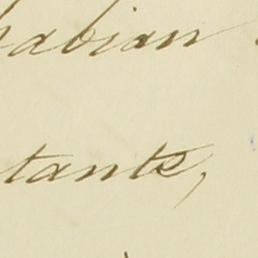 abian
tants,